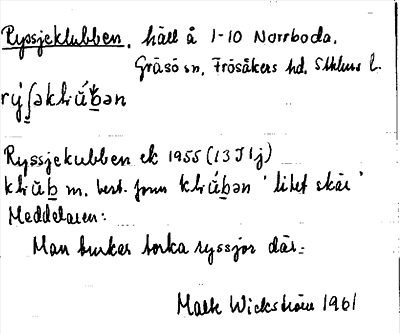 Ryssjeklubben, häll å 1-10 Norrboda,
Gräsö sn, Frösåkers hd, Sthlms l.
Ryssjekubben ek 1955 (13 I 1j)
m. best. form 'litet skär'
Meddelaren:
Man brukar torka ryssjor där.
Malte Wickström 1961